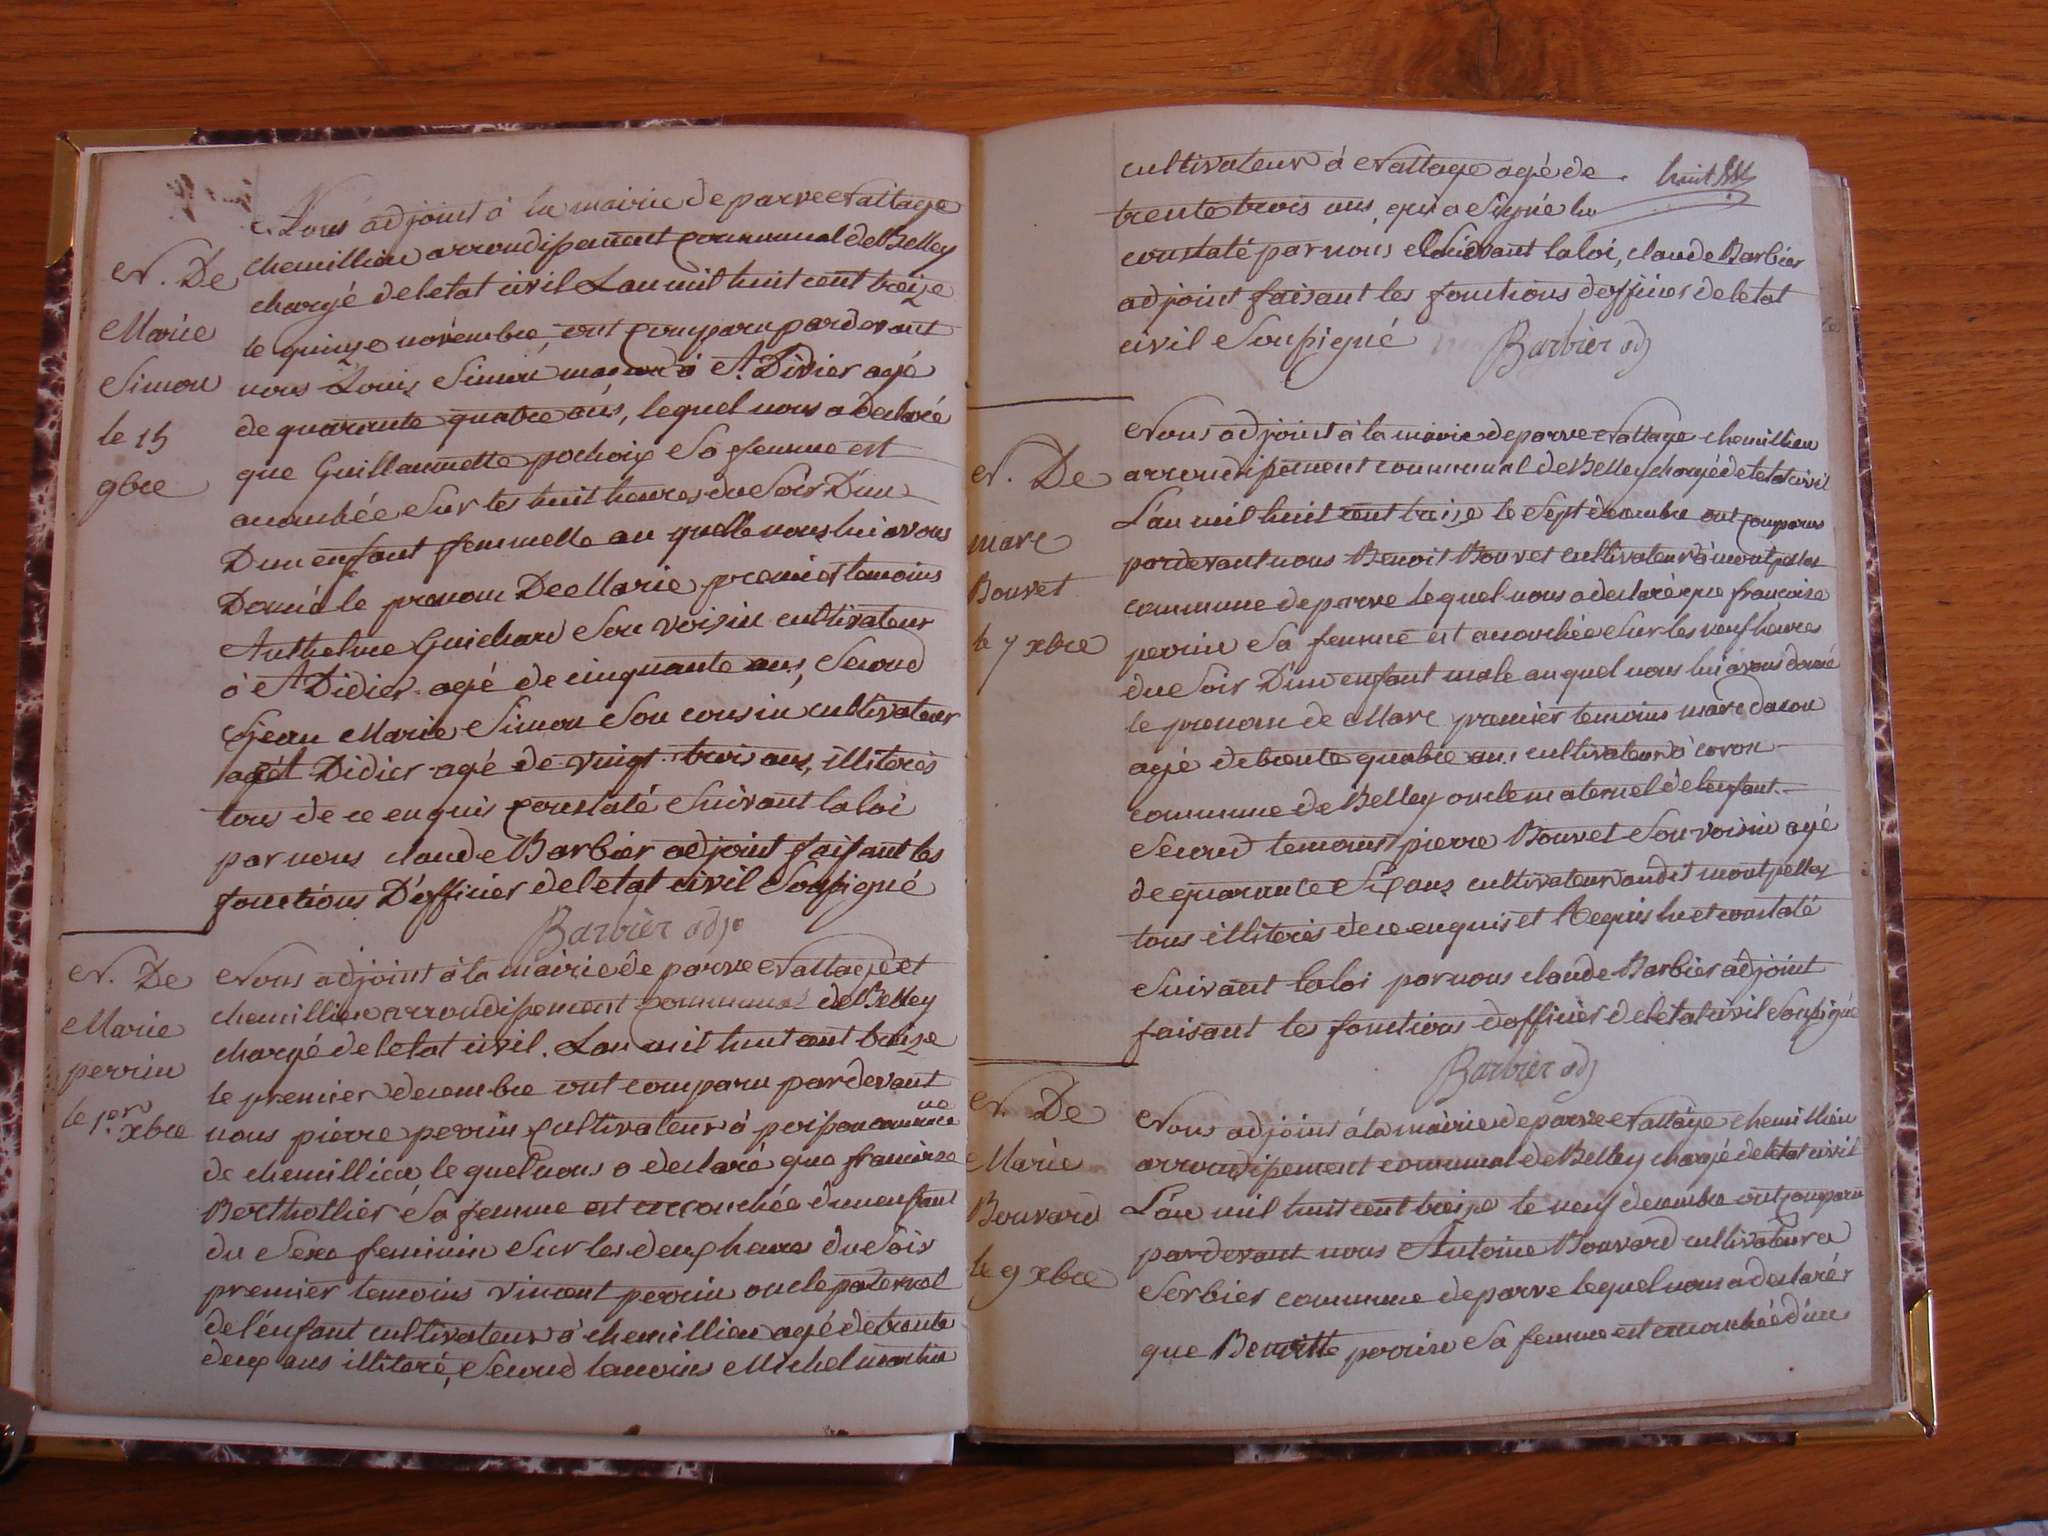 N. De
Marie
Simon
le 15
9bre
Nous adjoint à la mairie de parve Nattage
chemillieu arrondissement communal de Belley
chargé de letat civil Lan mil huit cent treize
le quinze novembre, ont comparu pardevant
nous Louis Simon à St. Didier agé
de quarante quatre ans, lequel nous a declaré
que Guillaumette pochoix Sa femme est
acouchée Sur les huit heures du Soir D'un
D'un enfant femmelle au quelle nous lui avons
Donné le prenom De Marie premier temoins
Anthelme Guichard Son voisin cultivateur
à St Didier agé de cinquante ans, Second
jean Marie Simon Son cousin cultivateur
Didier agé de vingt trois ans, illiterés
tous de ce enquis constaté Suivant la loi
par nous claude Barbier adjoint faisant les
fonctions D'officier de letat civil Soussigné
Barbier adjo
N. De
Marie
perrin
le 1.er xbre
Nous adjoint à la mairie de parve Nattage et
chemillieu arrondissement communal de Belley
chargé de letat civil. Lan mil huit cent treize
le premier decembre ont comparu pardevant
nous pierre perrin cultivateur à commune
de chemillieu le quel nous a declaré que francoise
Berthollier Sa femme est accouchée dun enfant
du Sexe feminin Sur les deux heures du Soir
premier temoins vincent perrin oncle paternel
de l'enfant cultivateur à chemillieu agé de trente
deux ans illiteré, Second temoins Michel martin
cultivateur à Nattage agé de huit
trente trois ans, qui a Signé lu
constaté par nous Suivant la loi, claude Barbier
adjoint faisant les fonctions d'officier de letat
civil Soussigné Barbier adj
N. De
marc
Bouvet
le 7 xbre
Nous adjoint à la mairie de parve Nattage chemillieu
arrondissement communal de Belley chargé de letat civil
L'an mil huit cent treize le Sept decembre ont comparus
pardevant nous Benoit Bouvet cultivateur à montpellas
commune de parve lequel nous a declaré que francoise
perrin Sa femme est acouchée Sur les neuf heures
du Soir D'un enfant male au quel nous lui avons donné
le prenom de Marc premier temoins marc dacon
agé de trente quatre ans cultivateur à coron
commune de Belley oncle maternel de l'enfant
Second temoins pierre Bouvet Son voisin agé
de quarante Six ans cultivateur audit montpellas
tous illiterés de ce enquis et Requis lu et constaté
Suivant la loi par nous claude Barbier adjoint
faisant les fonctions d'officier de letat civil Soussigné
Barbier adj
N. De
Marie
Bouvard
le 9 xbre
Nous adjoint à la mairie de parve Nattage chemillieu
arrondissement communal de Belley chargé de letat civil
L'an mil huit cent treize le neuf decembre ont comparu
pardevant nous Antoine Bouvard cultivateur a
Sorbier commune de parve lequel nous a declarér
que Benoitte perrin Sa femme est acouchée d'un